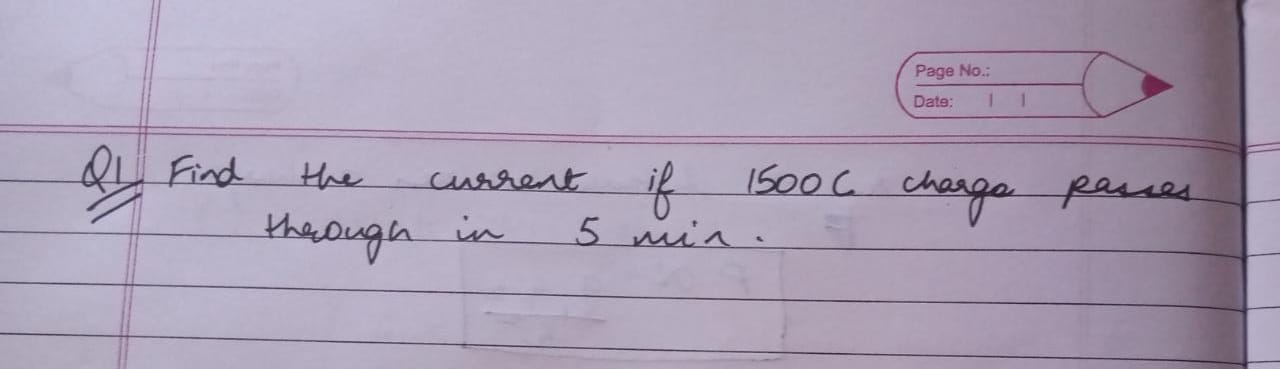 Page No.:
Date: | |
Q1 Find the current if 1500 C charge passes
through in 5 min.